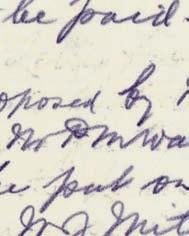 be paid.
oposed by
Mr P M Wa
e put on
W J Mit